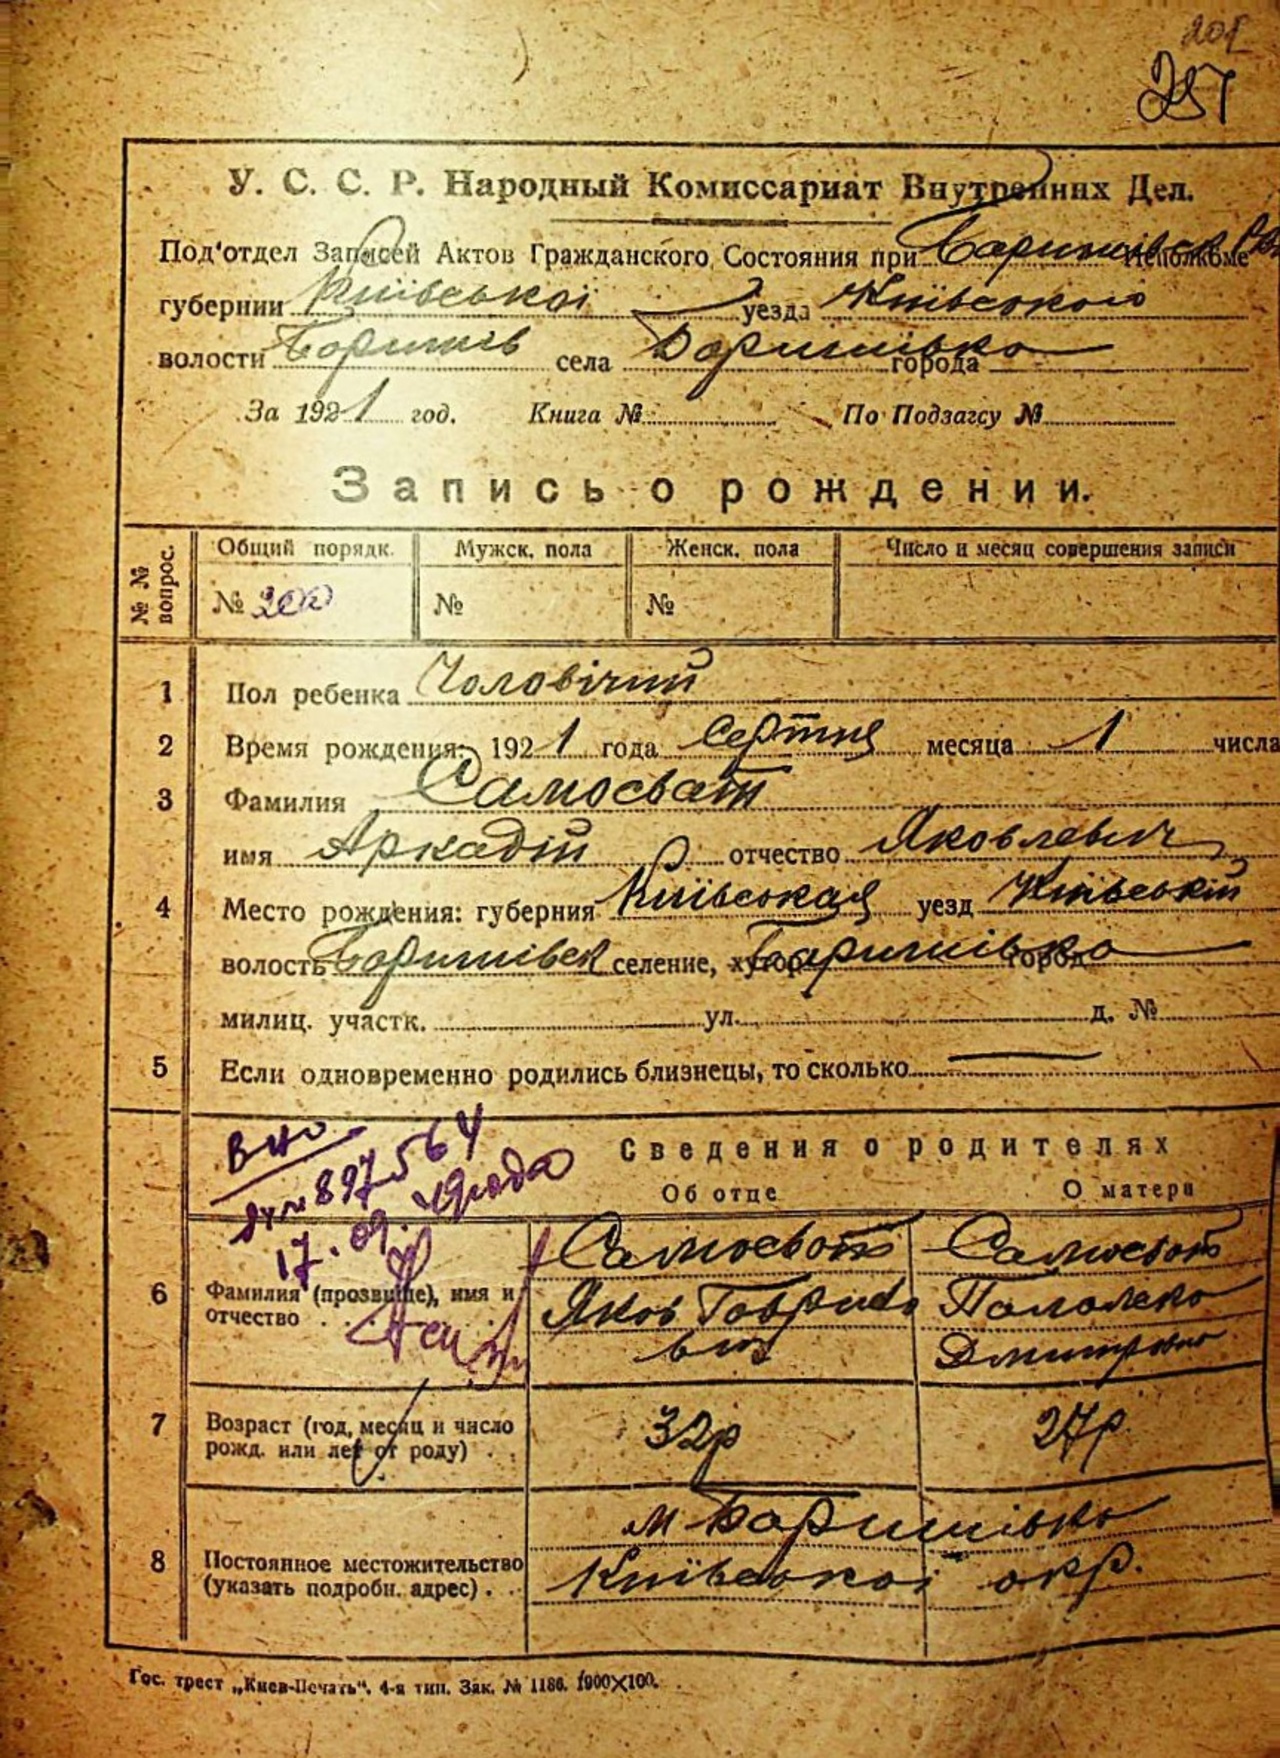 201
257
У. С. С. Р. Народный Комиссариат Внутренних Дел.
Под'отдел Записей Актов Гражданского Состояния при Исполкоме
губернии Київської уезда Київського
волости села Баришівка города
За 1921 год. Книга № По Подзагсу №
Запись о рождении.
№№ вопрос. Общий порядк. Мужск. пола Женск. пола Число и месяц совершения записи
№ 200 № №
1 Пол ребенка Чоловічий
2 Время рождения: 1921 года Серпня месяца 1 числа
3 Фамилия Самосват
имя Аркадій отчество Яковлевич
4 Место рождения: губерния Київськая уезд Київський
волость селение, хутор Баришівка город
милиц. участк. ул. д. №
5 Если одновременно родились близнецы, то сколько —
897564
17.09.
Сведения о родителях
Об отце О матери
6 Фамилия (прозвище), имя и отчество . . Самосват Самосват
Яков
вич
7 Возраст (год, месяц и число рожд. или лет от роду) . . 32р 27р
8 Постоянное местожительство (указать подробн. адрес) . . . м Баришівка
Київської окр.
Гос. трест „Киев-Печать“. 4-я тип. Зак. № 1186. 1900×100.